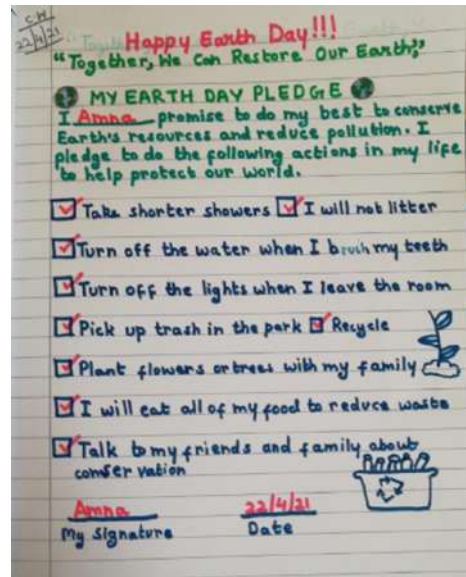 C.W
22/4/21
Happy Earth Day!!!
"Together, We Can Restore Our Earth,"
MY EARTH DAY PLEDGE
I Amna promise to do my best to conserve
Earth's resources and reduce pollution. I
pledge to do the following actions in my life
to help protect our world.
Take shorter showers I will not litter
Turn off the water when I brush my teeth
Turn off the lights when I leave the room
Pick up trash in the park Recycle
Plant flowers or trees with my family
I will eat all of my food to reduce waste
Talk to my friends and family about
conservation
Amna 22/4/21
My Signature Date